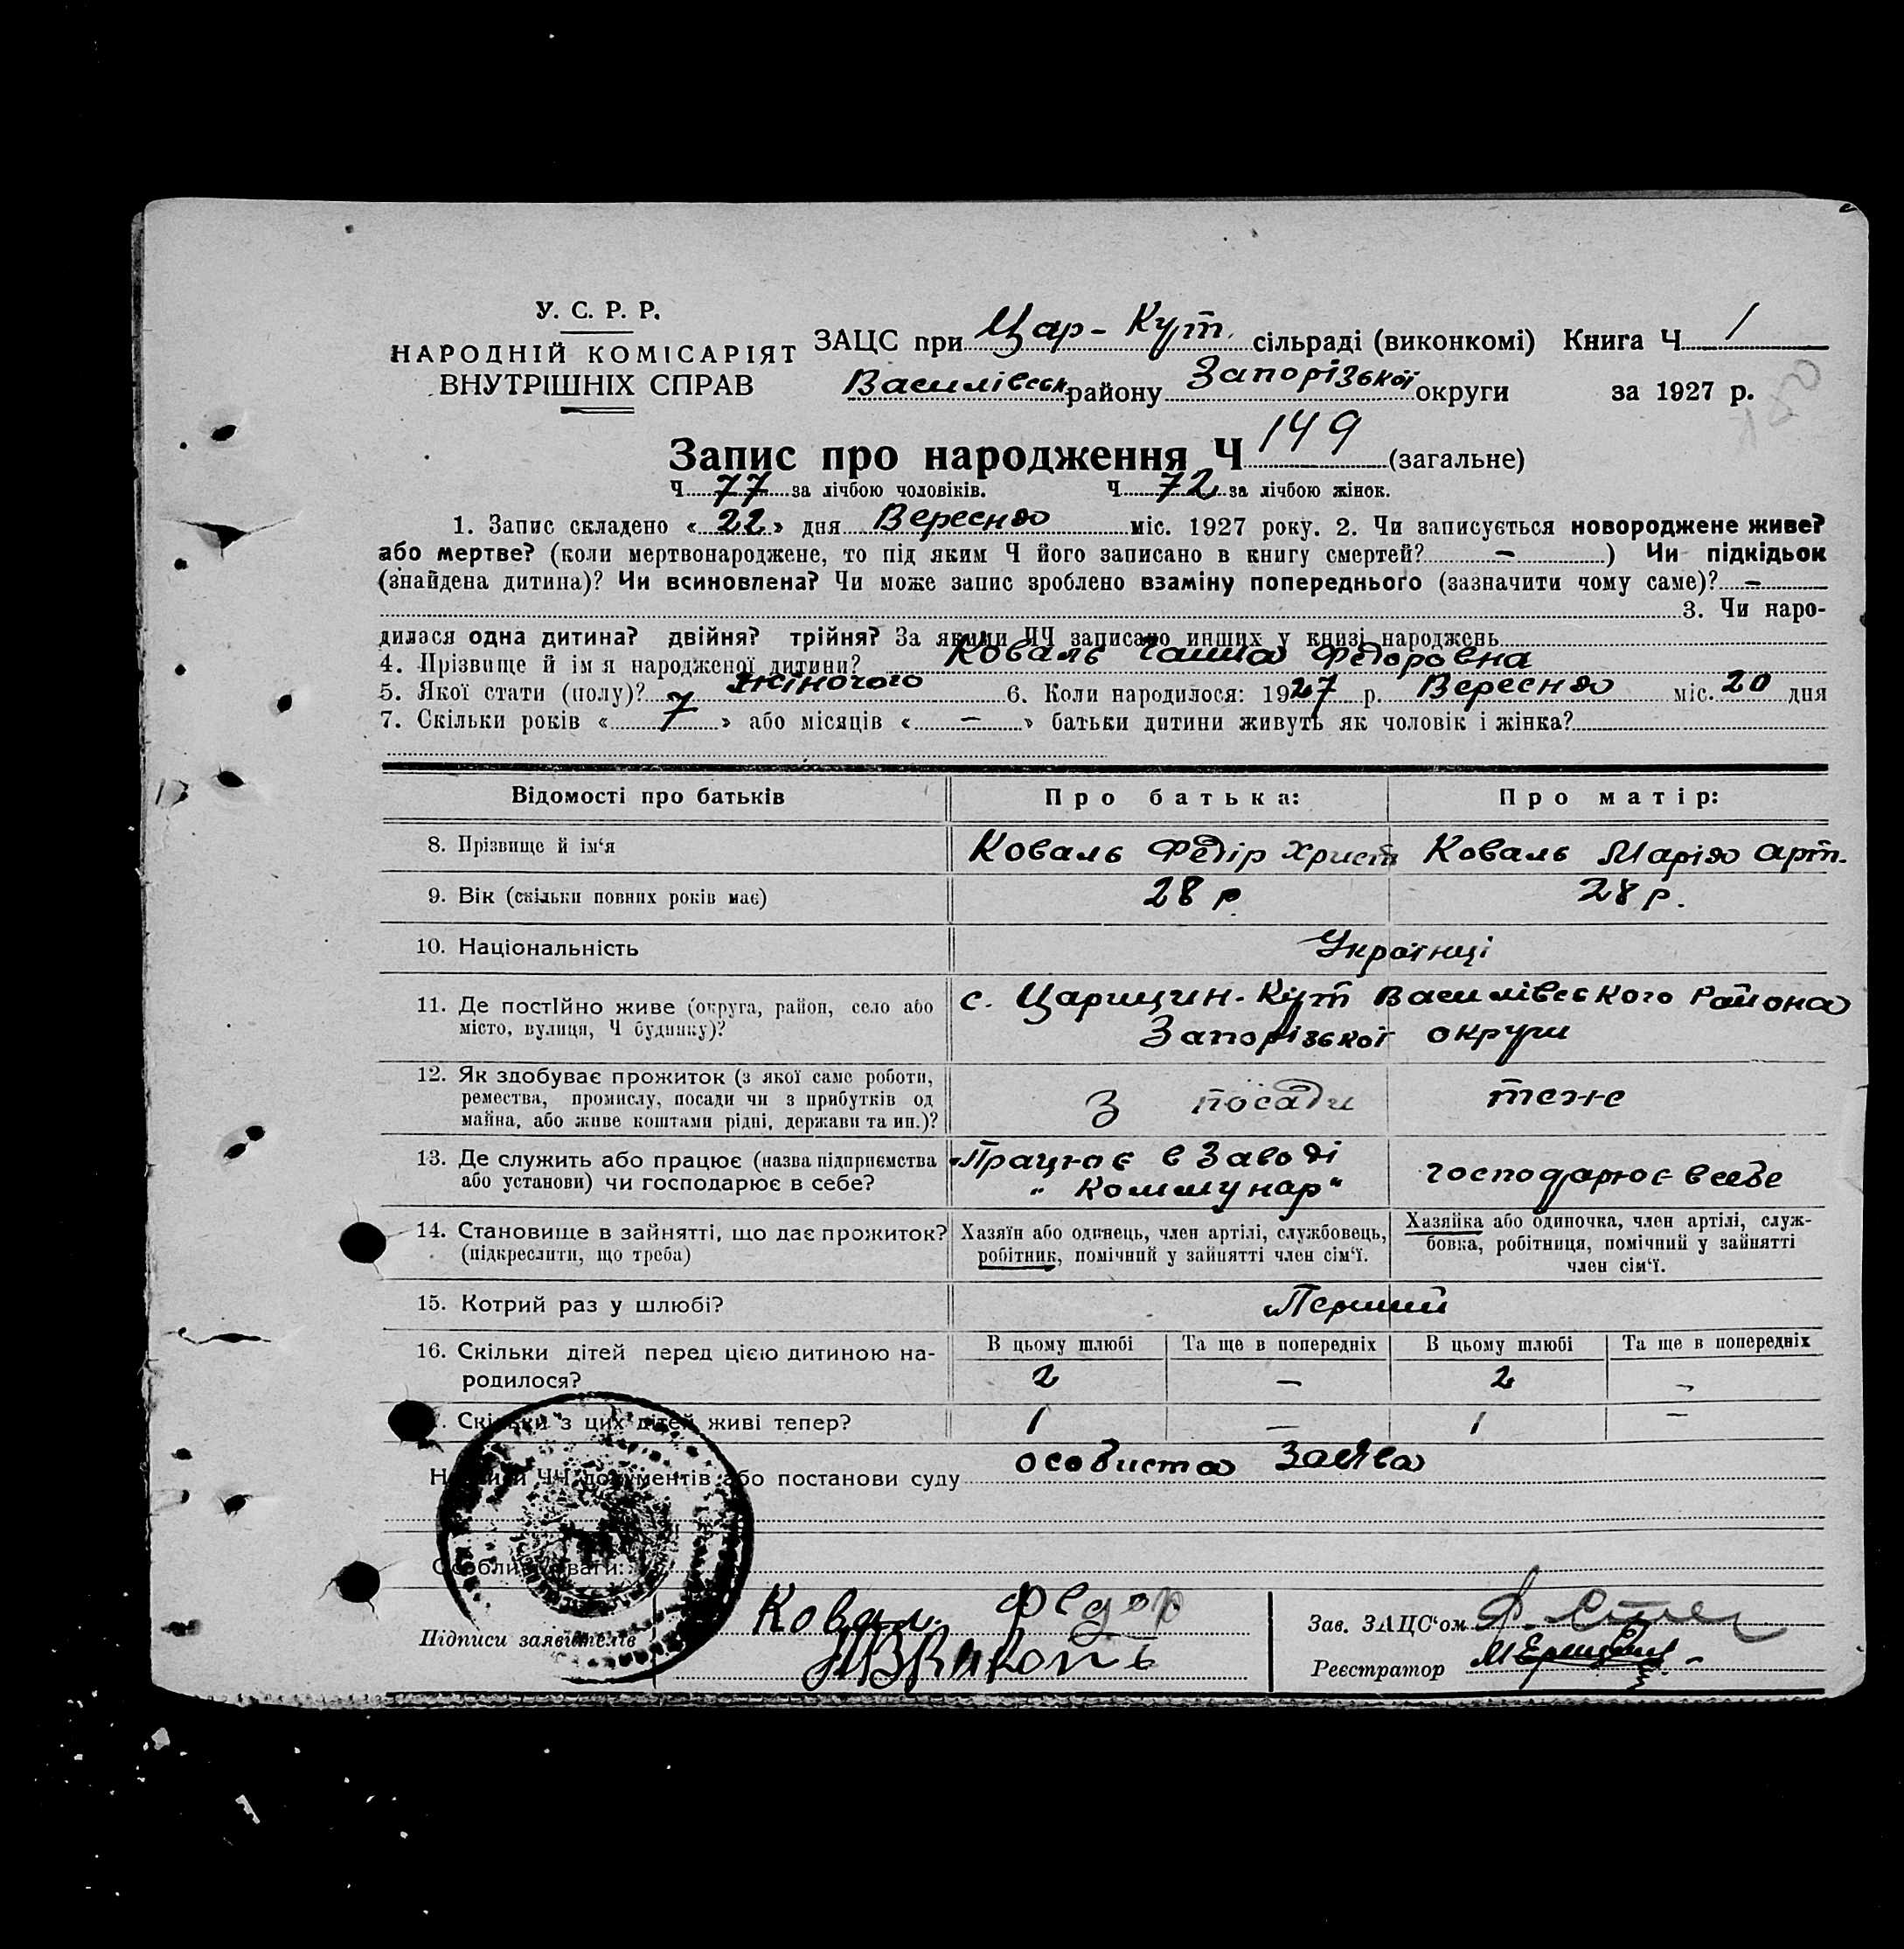 У. С. Р. Р.
НАРОДНІЙ КОМІСАРІЯТ
ВНУТРІШНІХ СПРАВ
ЗАЦС при Цар-Кут. сільраді (виконкомі) Книга Ч 1
Василівськ району Запорізької округи за 1927 р.
Запис про народження Ч 149 (загальне)
Ч 77 за лічбою чоловіків. Ч 72 за лічбою жінок.
1. Запис складено «22» дня Вересня міс. 1927 року. 2. Чи записується новороджене живе?
або мертве? (коли мертвонароджене, то під яким Ч його записано в книгу смертей? — ) Чи підкідьок
(знайдена дитина)? Чи всиновлена? Чи може запис зроблено взаміну попереднього (зазначити чому саме)? —
3. Чи наро-
дилася одна дитина? двійня? трійня? За якими ЧЧ записано инших у книзі народжень
4. Прізвище й ім'я народженої дитини? Коваль Ганна Федоровна
5. Якої стати (полу)? жіночого 6. Коли народилося: 1927 р. Вересня міс. 20 дня
7. Скільки років «7» або місяців «—» батьки дитини живуть як чоловік і жінка?
Відомості про батьків Про батька: Про матір:
8. Прізвище й ім'я Коваль Федір Христ Коваль Марія Арт.
9. Вік (скільки повних років має) 28 р. 28 р.
10. Національність Українці
11. Де постійно живе (округа, район, село або с. Царицин-Кут Василівського Района
місто, вулиця, Ч будинку)? Запорізької округи
12. Як здобуває прожиток (з якої саме роботи,
ремества, промислу, посади чи з прибутків од З посади теж
майна, або живе коштами рідні, держави та ин.)?
13. Де служить або працює (назва підприємства Працює в Заводі
або установи) чи господарює в себе? "Коммунар" господарює в себе
14. Становище в зайнятті, що дає прожиток? Хазяїн або одинець, член артілі, службовець, Хазяйка або одиночка, член артілі, служ-
(підкреслити, що треба) робітник, помічний у зайнятті член сім'ї. бовка, робітниця, помічний у зайнятті
член сім'ї.
15. Котрий раз у шлюбі? Перший
16. Скільки дітей перед цією дитиною на- В цьому шлюбі Та ще в попередніх В цьому шлюбі Та ще в попередніх
родилося? 2 — 2 —
Скільки з цих дітей живі тепер? 1 — 1 —
документів або постанови суду особиста заява
Підписи заявителів Коваль Федор
Зав. ЗАЦС'ом
Реєстратор